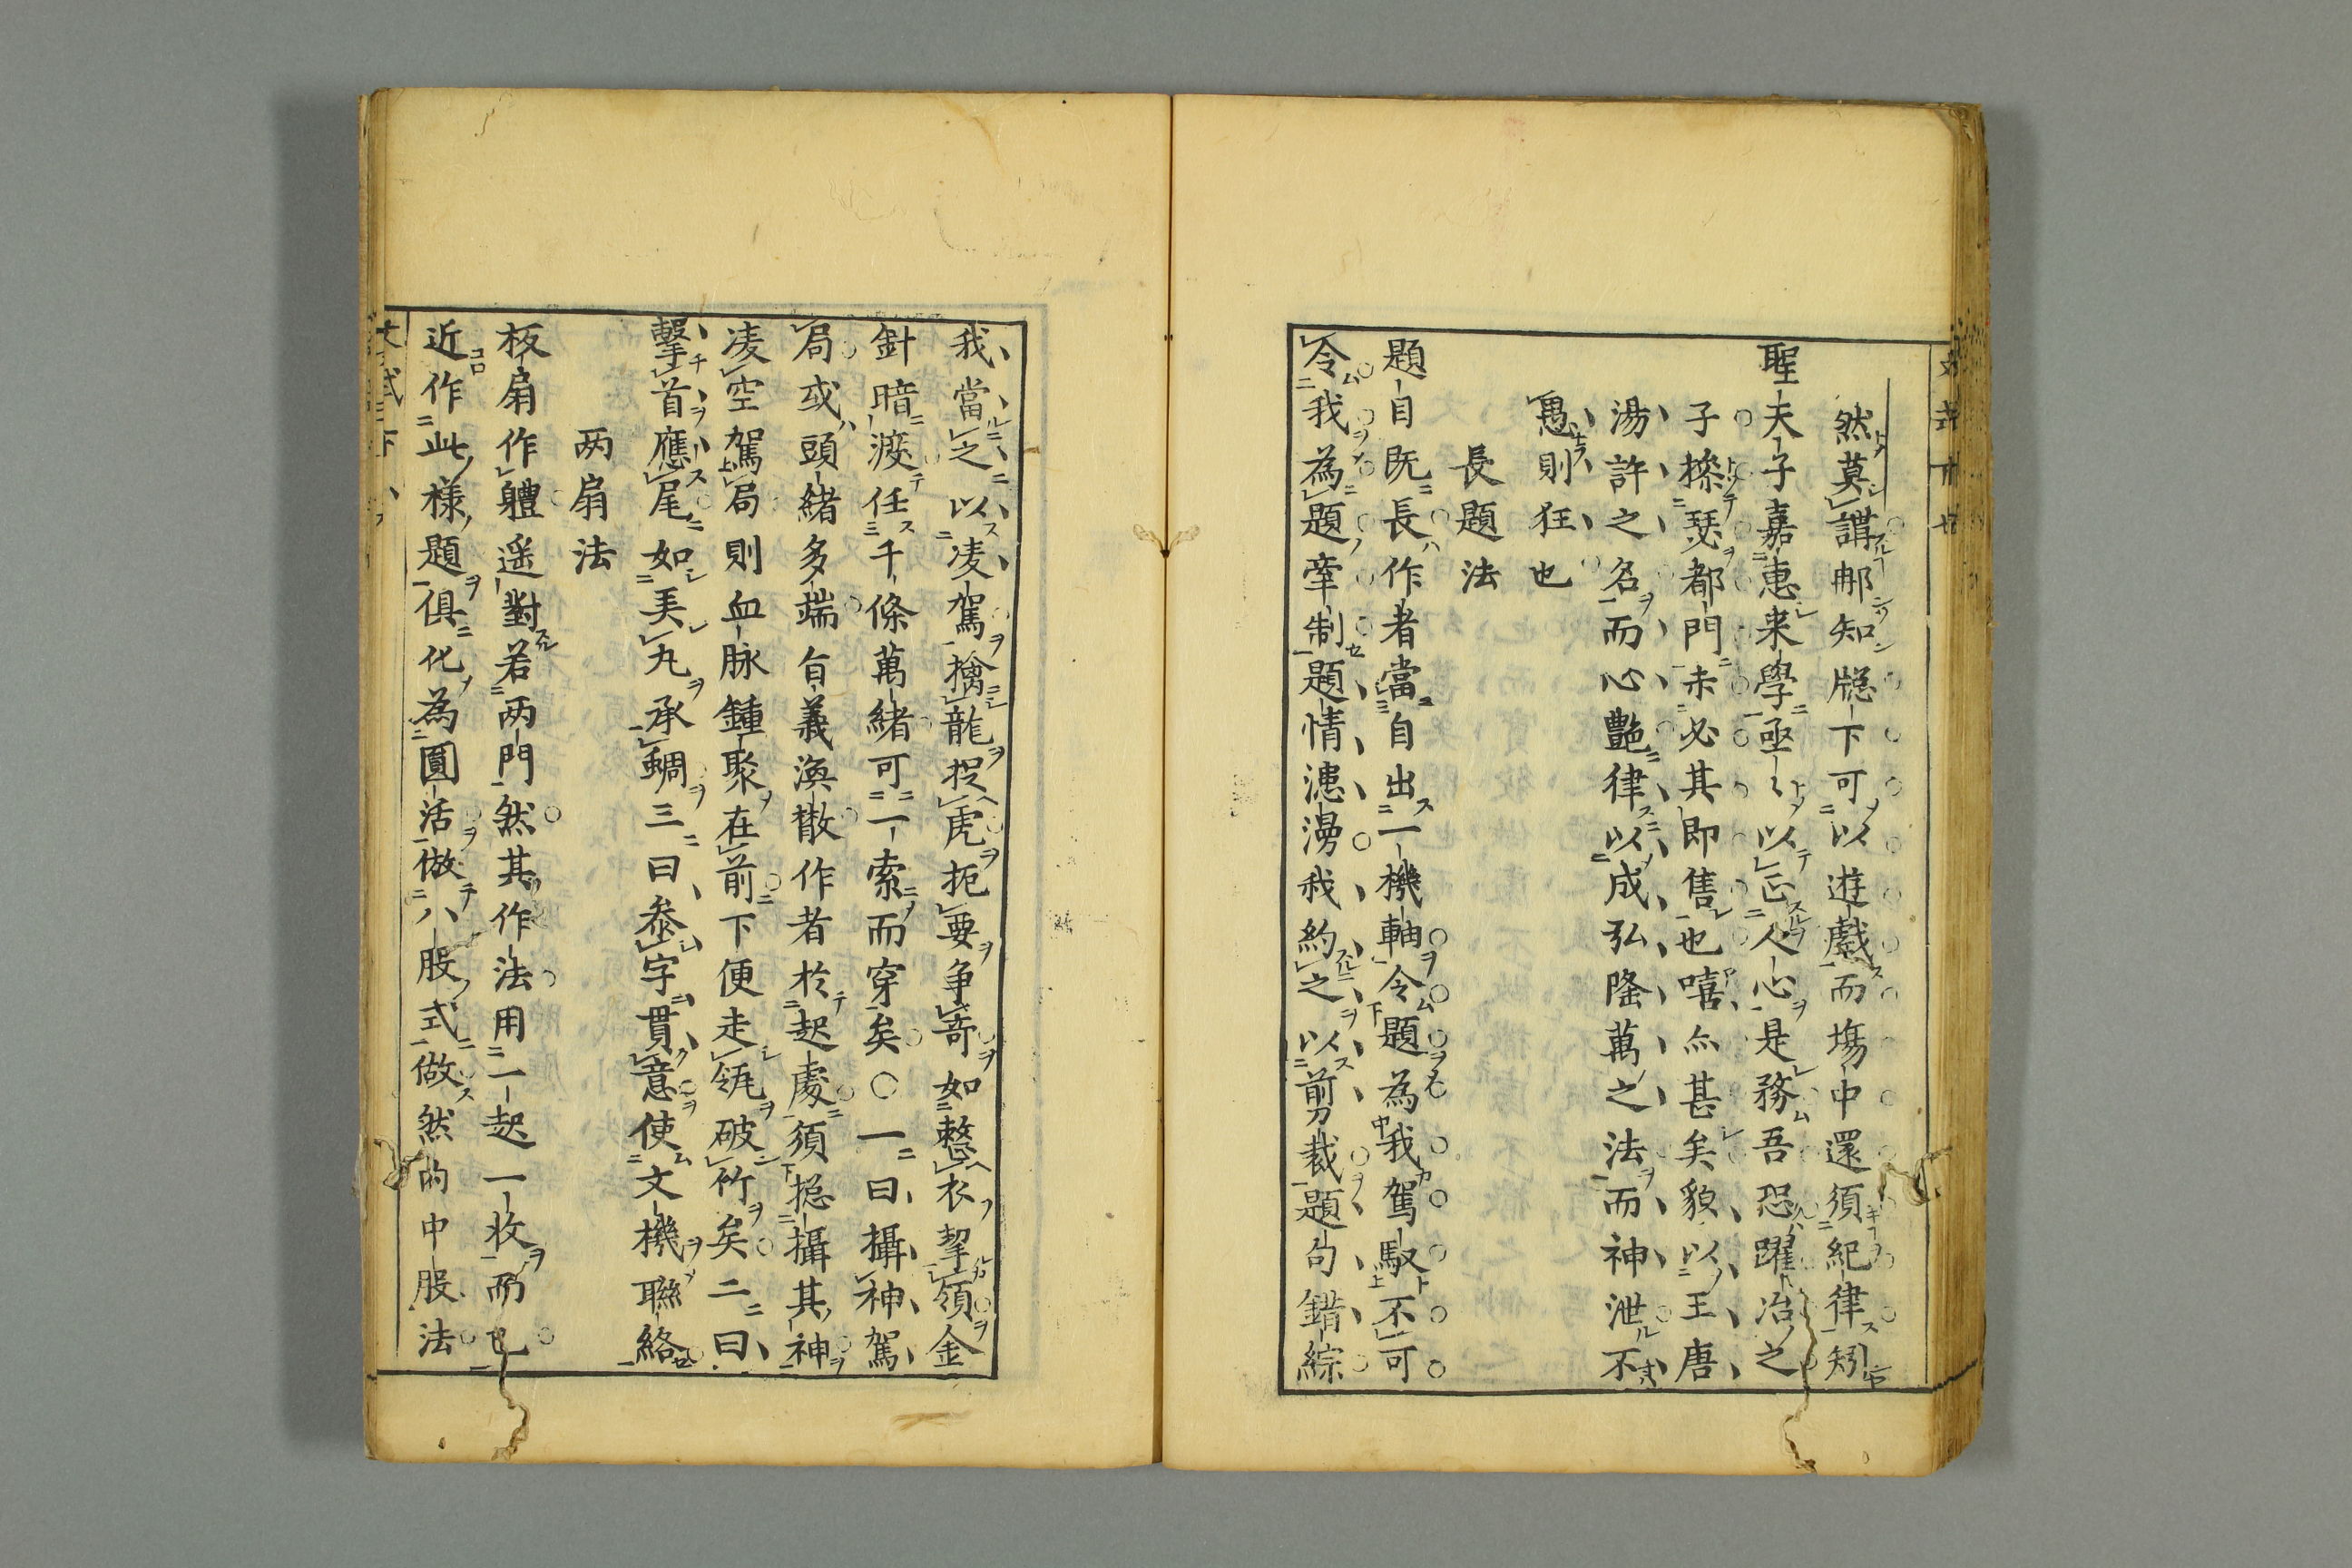 然莫謂郍知牕下可以遊戲而塲中還須紀律矧
聖夫子嘉惠来學亟〻以正人心是務吾恐躍冶之
子操瑟都門未必其即售也嘻亦甚矣貌以王唐
湯許之名而心艷律以成弘隆萬之法而神泄不
愚則狂也
長題法
題目既長作者當自出一機軸令題為我駕馭不可
令我為題牽制題情漶漫我約之以剪裁題句錯綜
我當之以凌駕擒龍捉虎扼要争竒如整衣挈領金
針暗渡任千條萬緒可一索而穿矣○一曰攝神駕
局或頭緒多端旨義渙散作者於起處須捴攝其神
凌空駕局則血脉鍾聚在前下便走瓴破竹矣二曰
擊首應尾如美丸承蜩三曰叅字貫意使文機聯絡
两扇法
板扇作軆遥對若两門然其作法用一起一收而已
近作此様題俱化為圓活倣八股式做然的中股法